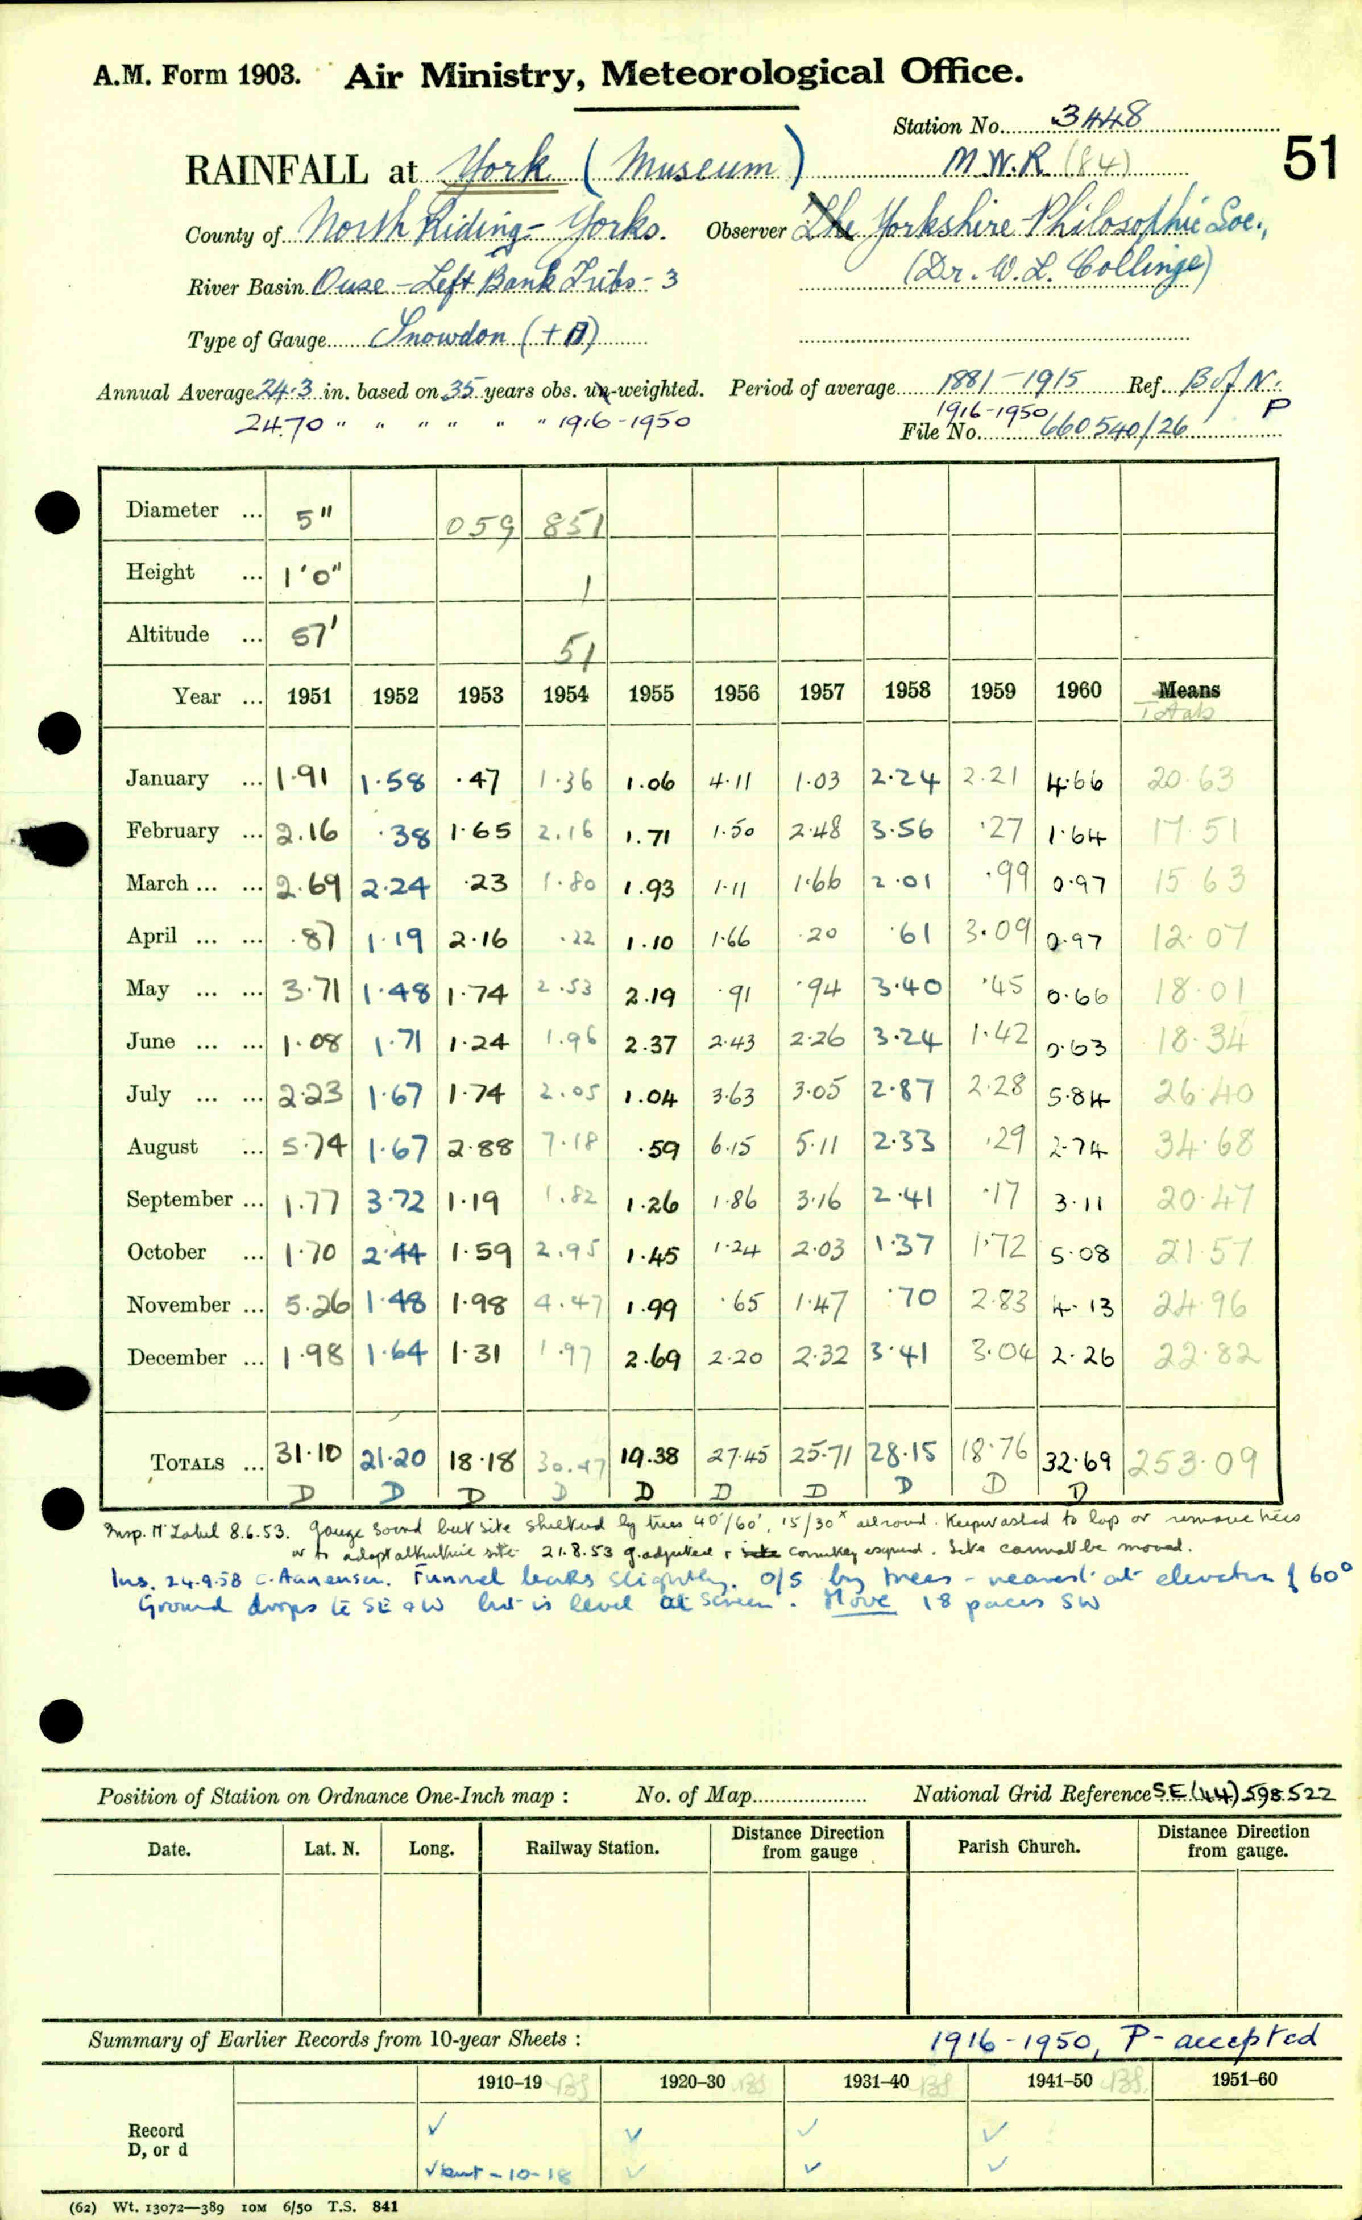 A.M. Form 1903. Air Ministry, Meteorological Office.
Station No. 3448
51
RAINFALL at York (Museum) M.W.R (84)
County of North Riding - Yorks. Observer The Yorkshire Philosophic Soc.,
(Dr. W. L. Collinge)
River Basin Ouse - Left Bank Tribs - 3
Type of Gauge Snowdon (+A)
Annual Average 24.3 in. based on 35 years obs. un-weighted. Period of average 1881-1915 Ref. B of N.
24.70 " " " " " " 1916-1950 1916-1950 P
File No. 660540/26
Diameter ... 5" 059 851
Height ... 1'0" 1
Altitude ... 57' 51
Year ... 1951 1952 1953 1954 1955 1956 1957 1958 1959 1960 Means
Totals
January ... 1.91 1.58 .47 1.36 1.06 4.11 1.03 2.24 2.21 4.66 20.63
February ... 2.16 .38 1.65 2.16 1.71 1.50 2.48 3.56 .27 1.64 17.51
March ... ... 2.69 2.24 .23 1.80 1.93 1.11 1.66 2.01 .99 0.97 15.63
April ... ... .87 1.19 2.16 .22 1.10 1.66 .20 .61 3.09 0.97 12.07
May ... ... 3.71 1.48 1.74 2.53 2.19 .91 .94 3.40 .45 0.66 18.01
June ... ... 1.08 1.71 1.24 1.96 2.37 2.43 2.26 3.24 1.42 0.63 18.34
July ... ... 2.23 1.67 1.74 2.05 1.04 3.63 3.05 2.87 2.28 5.84 26.40
August ... 5.74 1.67 2.88 7.18 .59 6.15 5.11 2.33 .29 2.74 34.68
September ... 1.77 3.72 1.19 1.82 1.26 1.86 3.16 2.41 .17 3.11 20.47
October ... 1.70 2.44 1.59 2.95 1.45 1.24 2.03 1.37 1.72 5.08 21.57
November ... 5.26 1.48 1.98 4.47 1.99 .65 1.47 .70 2.83 4.13 24.96
December ... 1.98 1.64 1.31 1.97 2.69 2.20 2.32 3.41 3.04 2.26 22.82
TOTALS ... 31.10 21.20 18.18 30.47 19.38 27.45 25.71 28.15 18.76 32.69 253.09
D D D D D D D D D D
Insp. 8.6.53. Gauge sound but site sheltered by trees 40'/60', 15/30x all round. Keeper asked to lop or remove trees
or to adopt alternative site 21.8.53 g. adjusted + site . Site cannot be moved.
Ins. 24.9.58 C. Aanensen. Funnel leaks slightly. O/S by trees - nearest at elevation of 60°
Ground drops to SE & W but is level at screen. Move 18 paces SW
Position of Station on Ordnance One-Inch map : No. of Map National Grid Reference SE(44)598522
Date. Lat. N. Long. Railway Station. Distance Direction from gauge Parish Church. Distance Direction from gauge.
Summary of Earlier Records from 10-year Sheets : 1916-1950, P- accepted
1910–19 BS 1920–30 BS 1931–40 BS 1941–50 BS 1951–60
Record ✓ ✓ ✓ ✓
D, or d ✓ but -10-18 ✓ ✓ ✓
(62) Wt. 13072—389 10M 6/50 T.S. 841